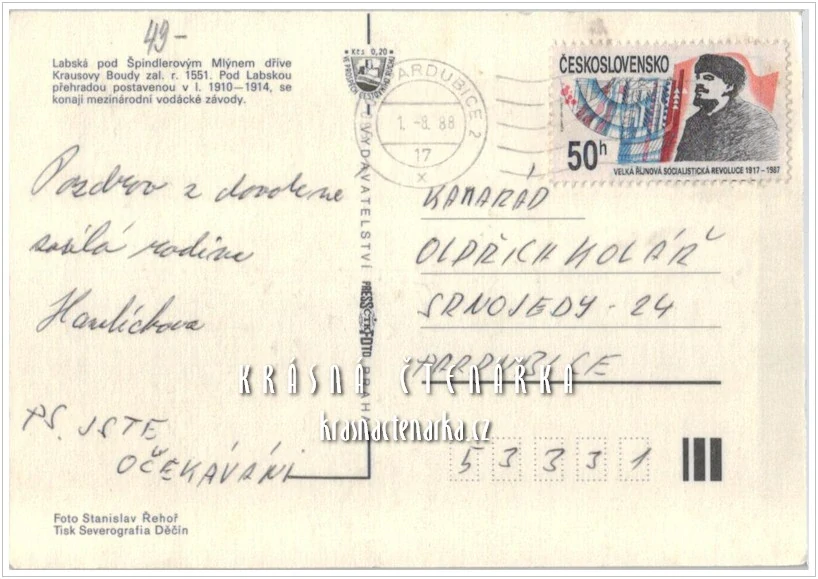 49-
Labská pod Špindlerovým Mlýnem dříve
Krausovy Boudy zal. r. 1551. Pod Labskou
přehradou postavenou v l. 1910—1914, se
konají mezinárodní vodácké závody.
Kčs 0,20
PARDUBICE 2
1.-8.88
17
x
ČESKOSLOVENSKO
50h
VELKÁ ŘÍJNOVÁ SOCIALISTICKÁ REVOLUCE 1917–1987
Pozdrav z dovolené
zasílá rodina
Havlíčkova
PS. JSTE
OČEKÁVÁNI
VYDAVATELSTVÍ PRESSFOTO PRAHA
KAMARÁD
OLDŘICH KOLÁŘ
SRNOJEDY - 24
PARDUBICE
53331
KRÁSNÁ ČTENÁŘKA
krasnactenarka.cz
Foto Stanislav Řehoř
Tisk Severografia Děčín